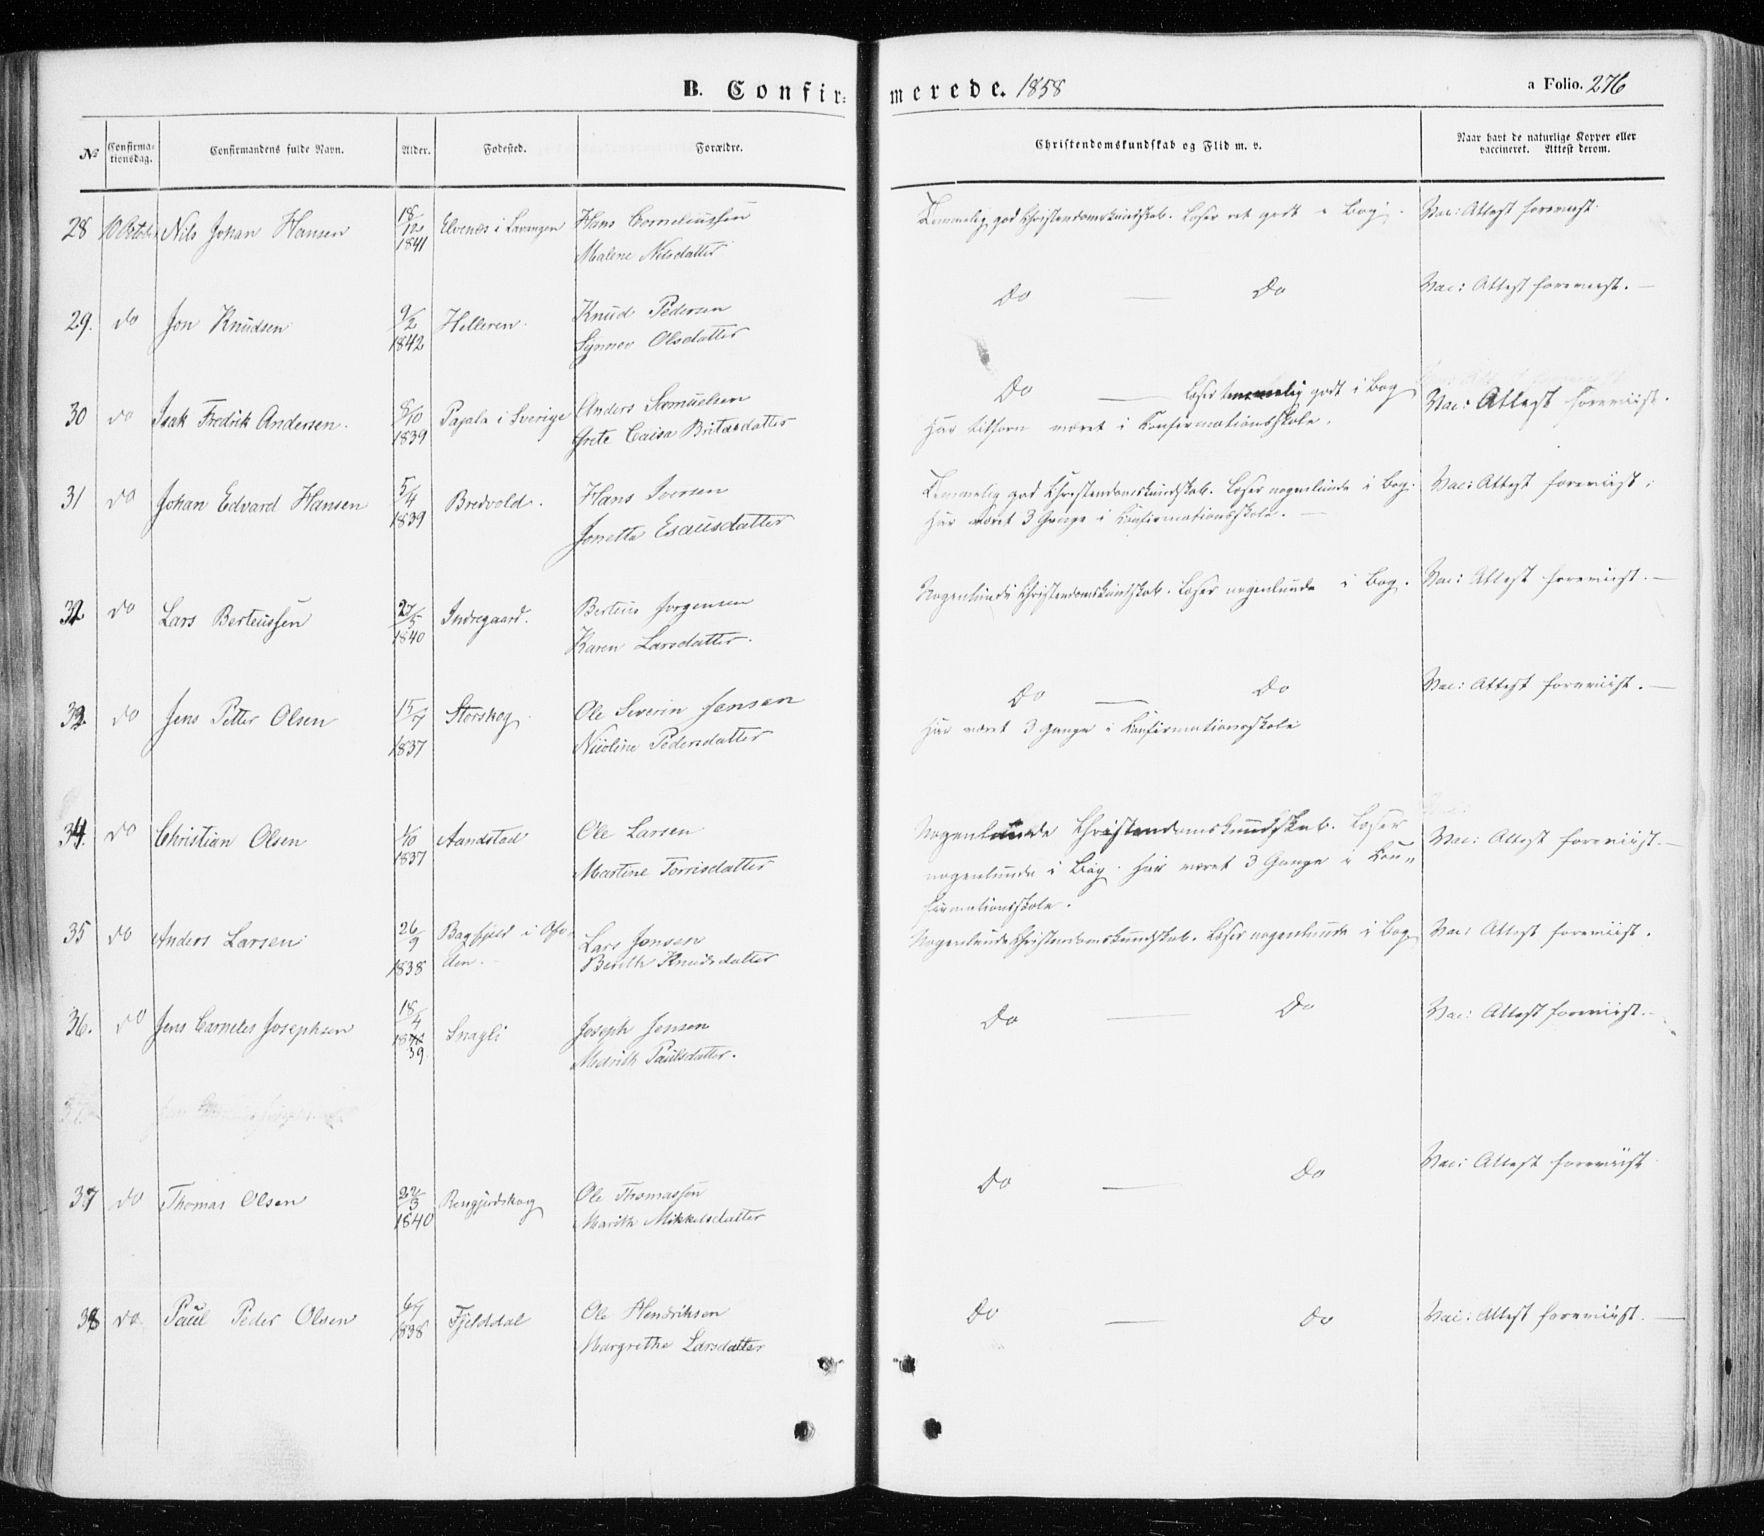 B. Confirmerede. 1858
a Folio. 276
№ Confirmationsdag. Confirmandens fulde Navn. Alder. Fødested. Forældre. Christendomskundskab og Flid m. v. Naar havt de naturlige Kopper eller vaccineret. Attest derom.
28 10 Octob. Nils Johan Hansen 18/12 1841 Elvenes i Lavangen Hans Corneliussen Temmelig god Christendomskundskab. Læser ret godt i Bog. Vac: Attest foreviist.
Malene Nilsdatter
29. do Jon Knudsen 9/2 1842 Helleren. Knud Pedersen Do — Do Vac: Attest foreviist. —
Synnev Olsdatter
30 do Isak Fredrik Andersen. 8/10 1839 Pajala i Sverige Anders Samuelsen Do — Læser temmelig godt i Bog Vac: Attest foreviist.
Grete Caisa Britasdatter Har tilforn været i Confirmationsskole.
31 do Johan Edvard Hansen 5/4 1839 Bredvold. Hans Iversen Temmelig god Christendomskundskab. Læser nogenlunde i Bog. Vac: Attest foreviist.
Jonetta Esausdatter Har været 3 Gange i Confirmationsskole. —
32. do Lars Berteussen 27/5 1840 Indregaard. Berteus Jørgensen Nogenlunde Christendomskundskab. Læser nogenlunde i Bog. Vac: Attest foreviist. —
Karen Larsdatter.
32. do Jens Petter Olsen 15/7 1837 Storskog Ole Severin Jensen Do — Do Vac: Attest foreviist. —
Nicoline Pedersdatter Har været 3 Gange i Confirmationsskole
34. do Christian Olsen 1/10 1837 Aandstad Ole Larsen Nogenlunde Christendomskundskab. Læser Vac: Attest foreviist. —
Martine Torrisdatter nogenlunde i Bog. Har været 3 Gange i Con„
firmationsskole.
35 do Anders Larsen 26/9 1838 Bagfjeld i Ofo- Lars Jonsen Nogenlunde Christendomskundskab. Læser nogenlunde i Bog Vac: Attest foreviist.
den. Berith Knudsdatter
36. do Jens Carneles Josephsen 18/4 39. Snagli Joseph Jensen Do — Do Vac: Attest foreviist. —
Medrith Paulsdatter.
37 do Thomas Olsen 22/3 1840 Rengjerdskog Ole Thomassen Do — Do Vac: Attest foreviist
Marith Mikkelsdatter
38 do. Paul Peder Olsen 6/7 1838 Fjelddal Ole Hendriksen Do — Do Vac: Attest foreviist. —
Margrethe Larsdatter